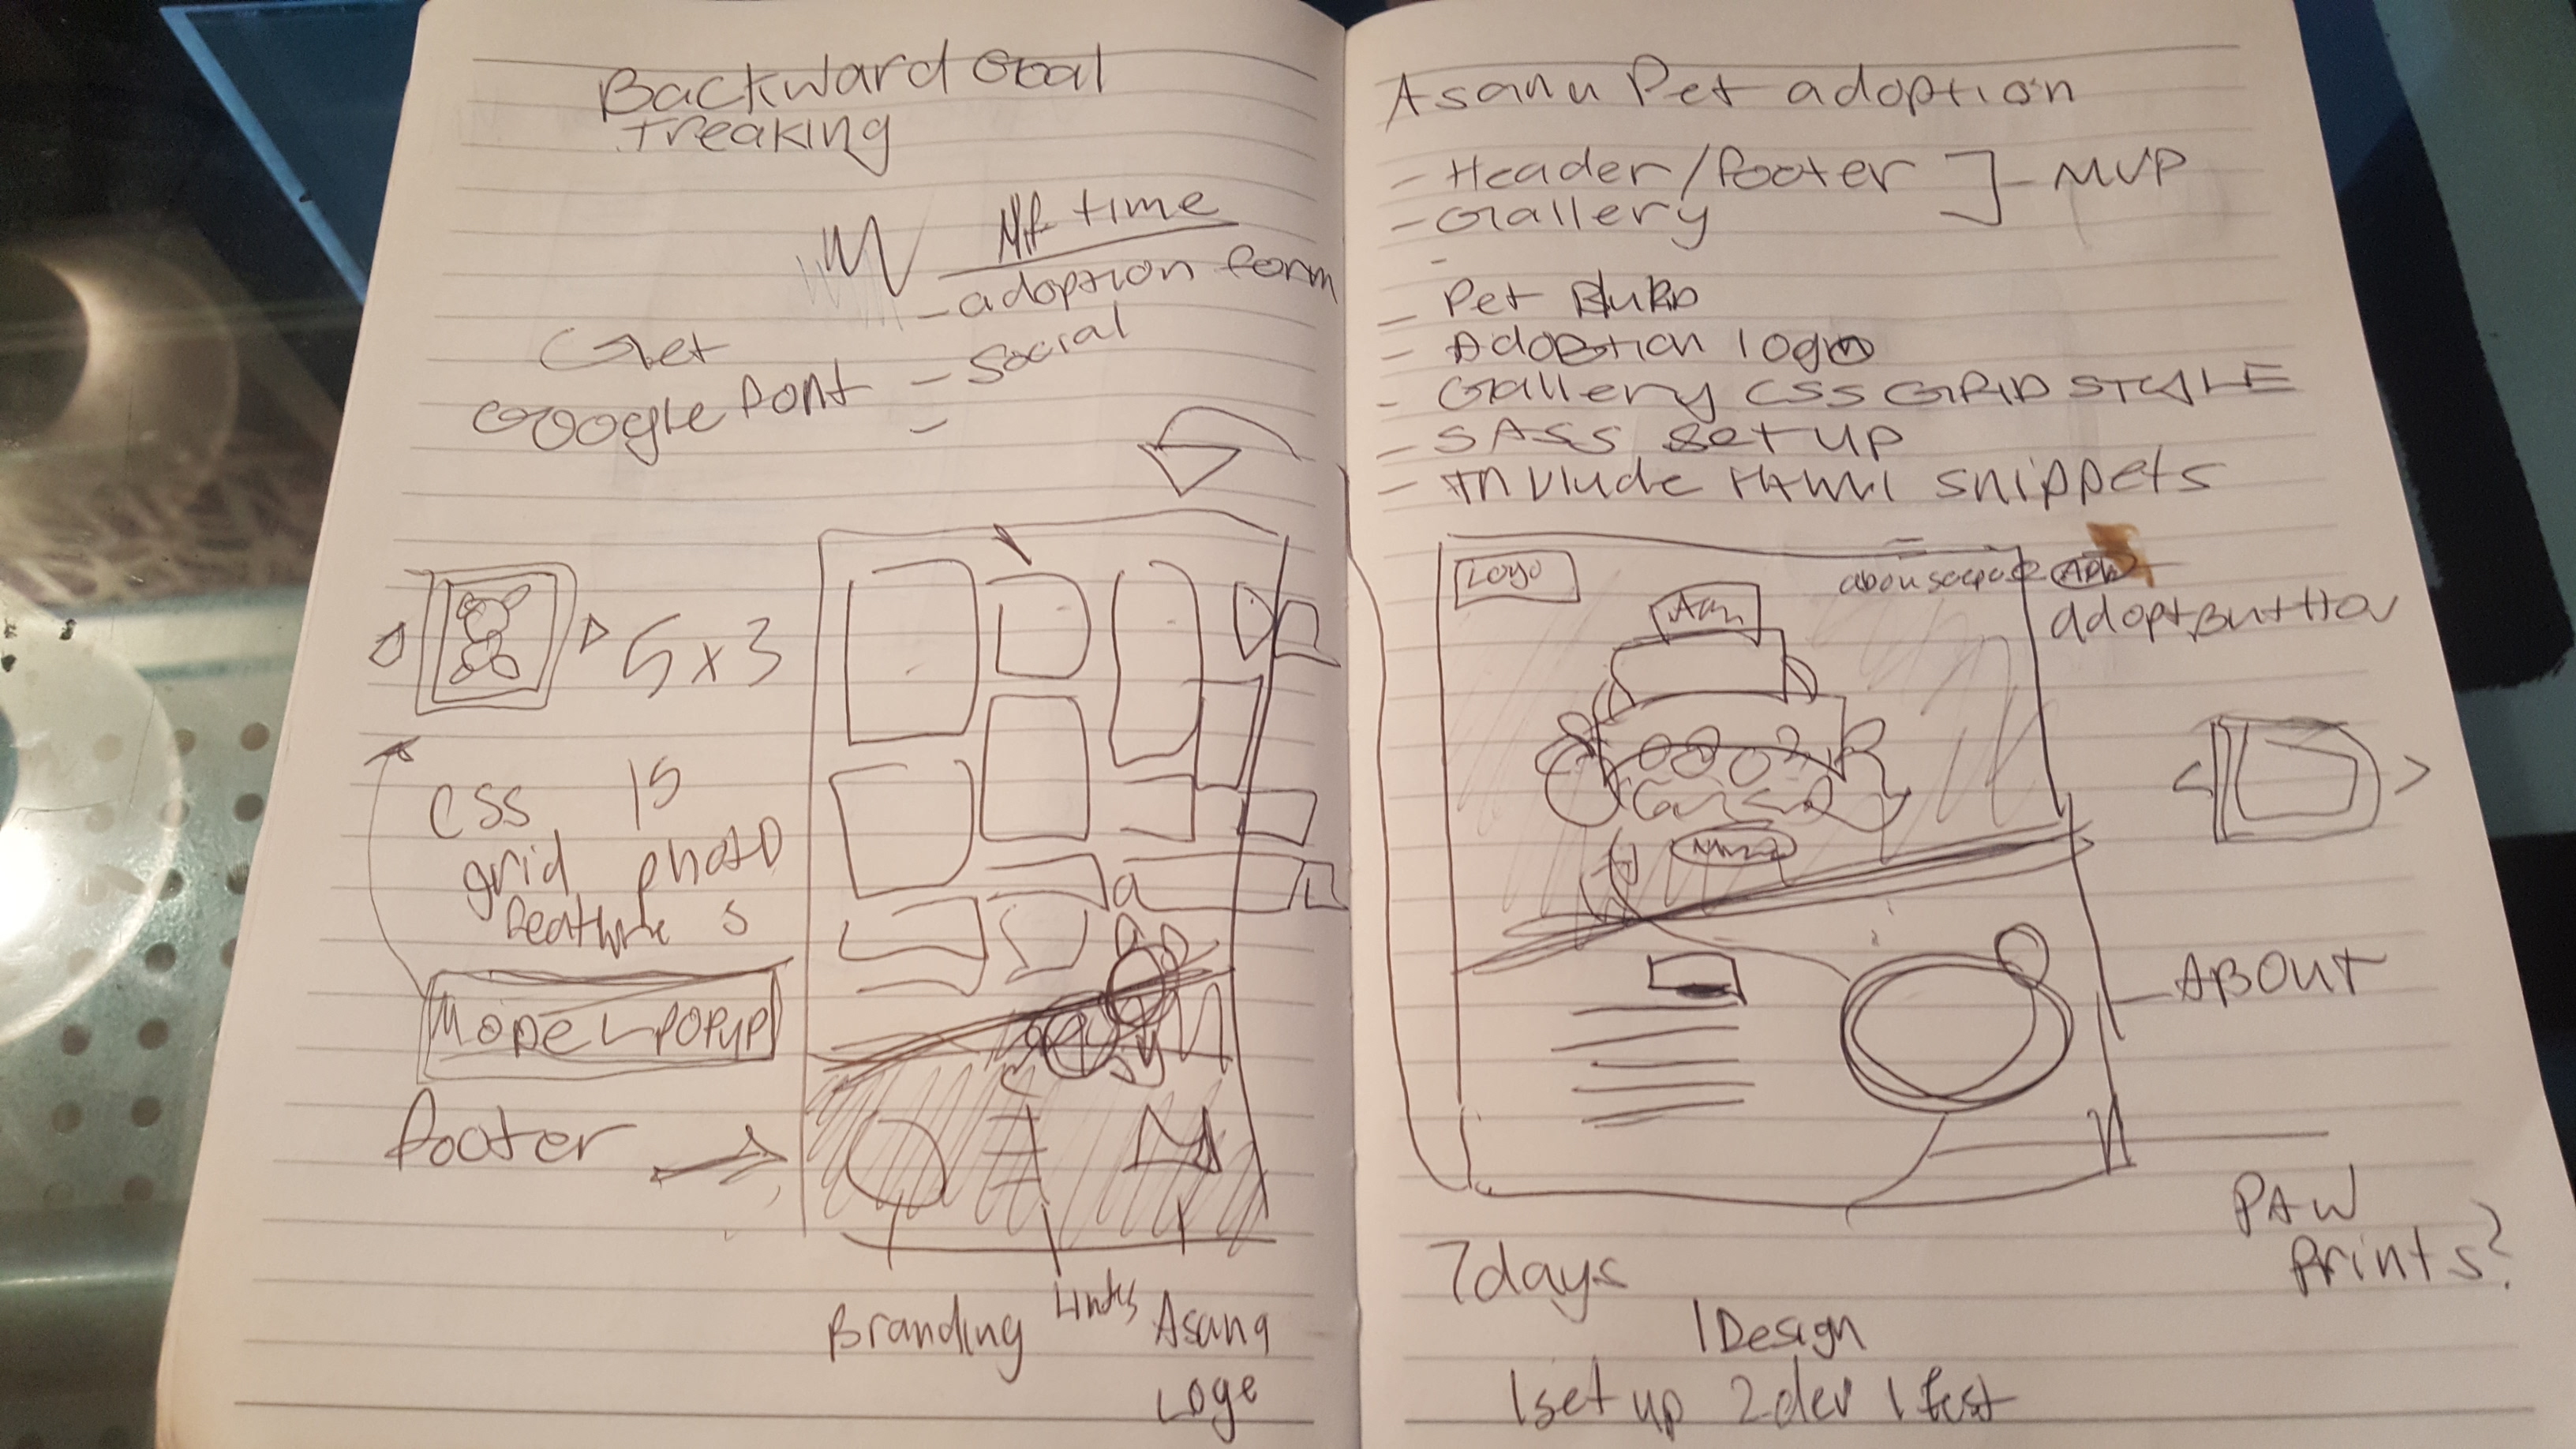 Backward Goal
Treaking
time
- adoption form
- Social
-
Get
Google Font
5 x 3
CSS
grid
feature
15
photo
s
Model Popup
Footer
Branding
Links
Asana
Loge
Asanu Pet adoption
- Header/Footer
- Gallery
MVP
-
- Pet
- Adoption logo
- Gallery CSS GRID STYLE
- SASS set up
- Include HTML snippets
Logo
adopt Button
- ABOUT
PAW
Prints?
7 days
1 Design
1 set up 2 dev 1 test